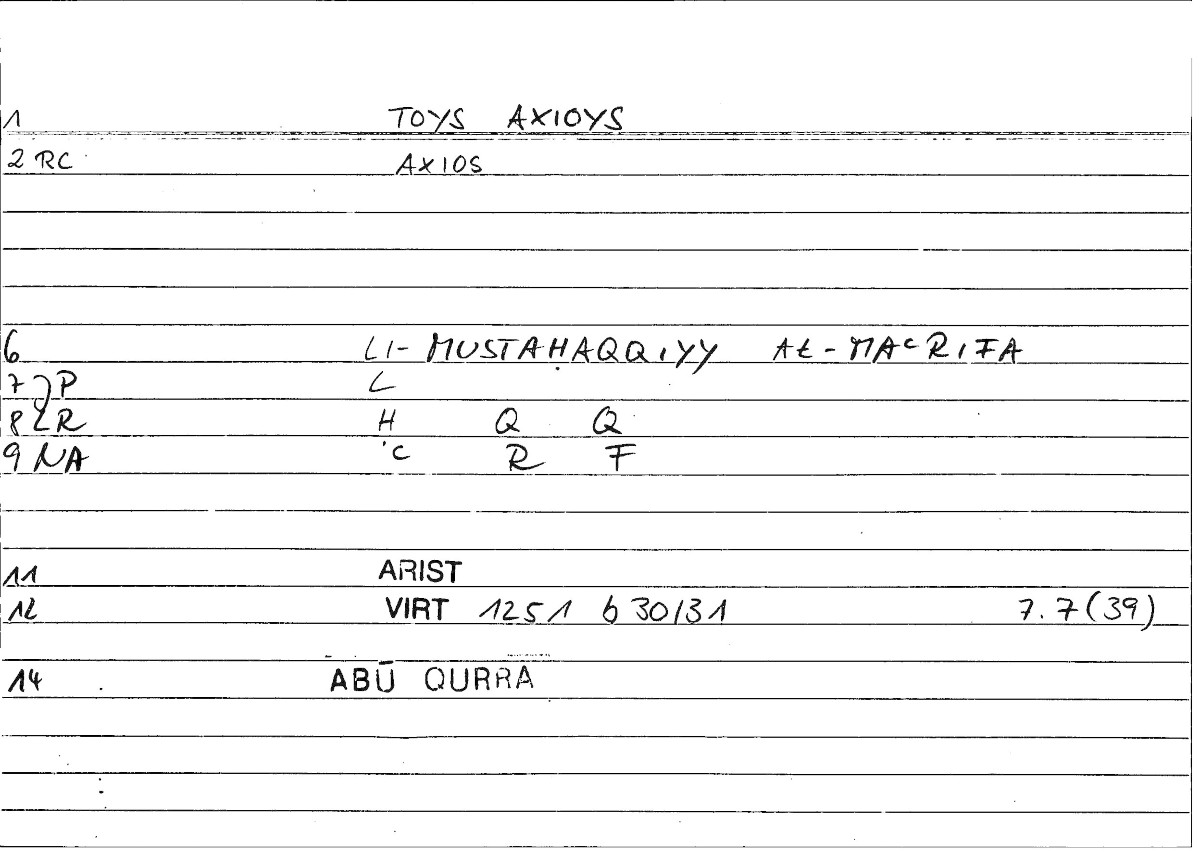 1 TOYS AXIOYS
2 RC AXIOS
6 LI- MUSTAḤAQQIYY AL-MAᶜRIFA
7 P L
8 R H Q Q
9 NA ᶜ R F
11 ARIST
12 VIRT 1251 b 30/31 7.7(39)
14 ABŪ QURRA